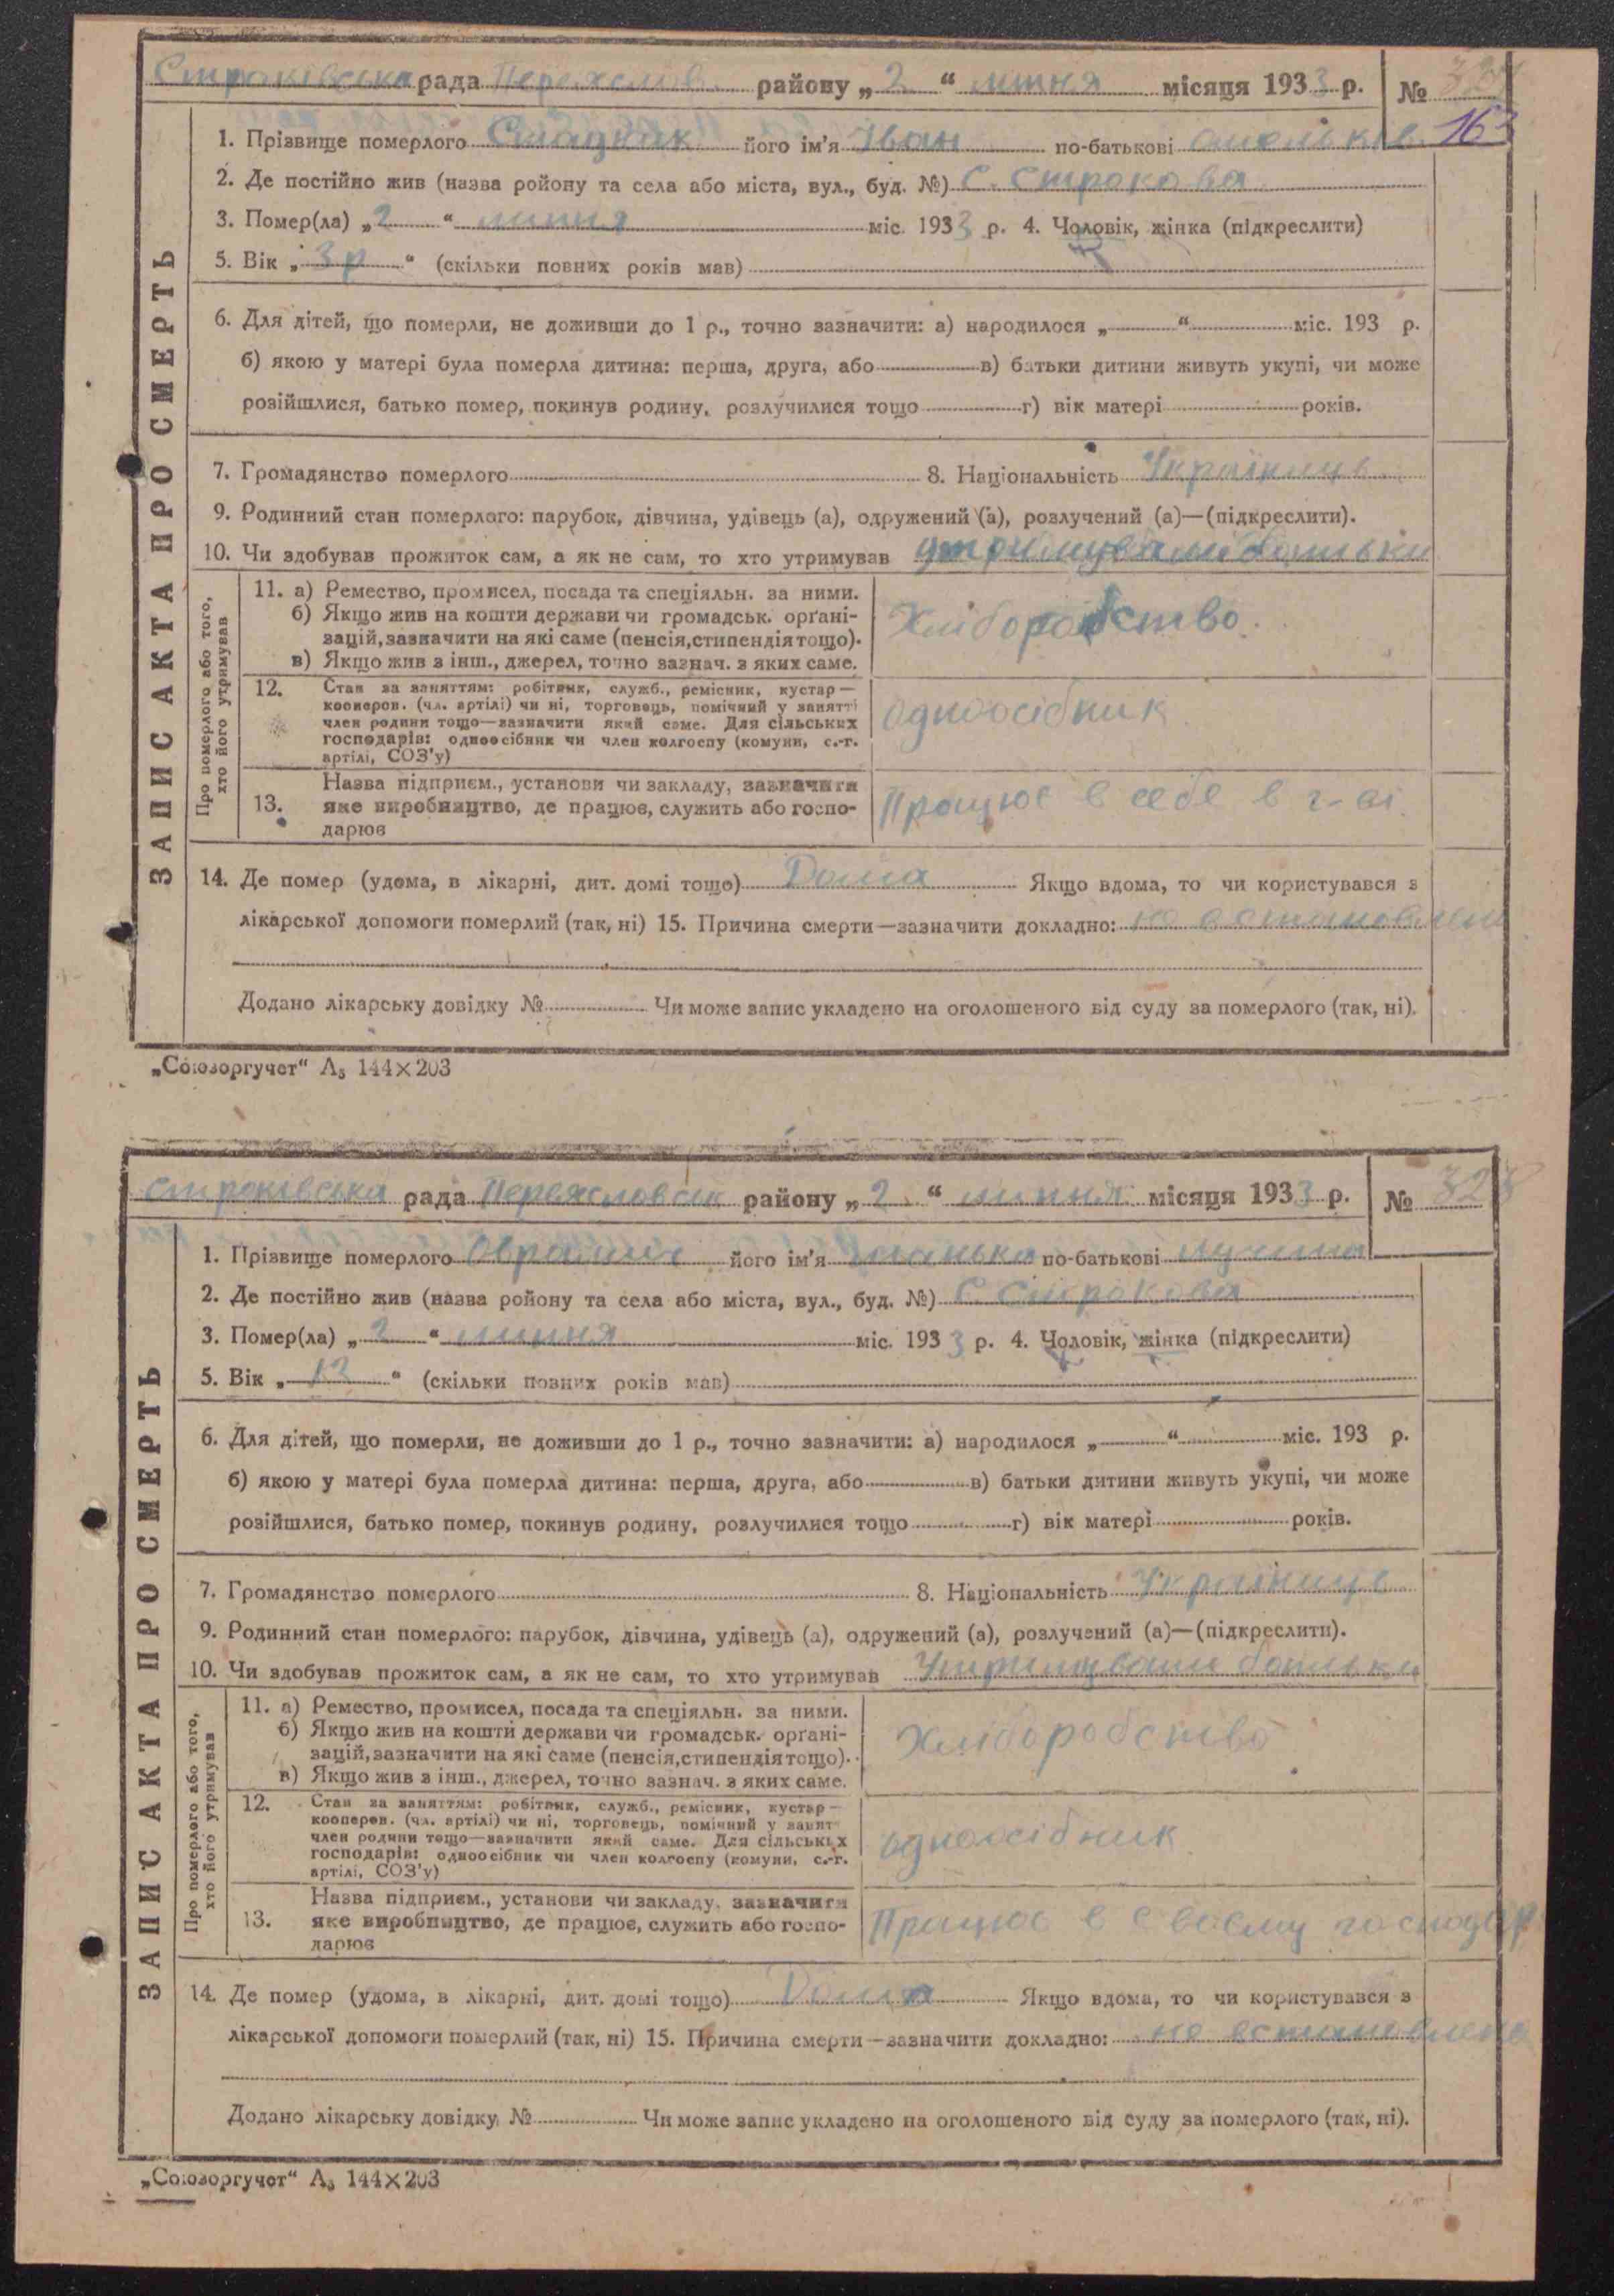 Строківська рада Переяслов. району „2“ липня місяця 1933 р. № 327
163
1. Прізвище померлого його ім'я Іван по-батькові
2. Де постійно жив (назва ройону та села або міста, вул., буд. №) С. Строкова
3. Помер(ла) „2“ липня міс. 1933 р. 4. Чоловік, жінка (підкреслити)
5. Вік „3 р“ (скільки повних років мав)
6. Для дітей, що померли, не доживши до 1 р., точно зазначити: а) народилося „ “ міс. 193 р.
б) якою у матері була померла дитина: перша, друга, або в) батьки дитини живуть укупі, чи може
розійшлися, батько помер, покинув родину, розлучилися тощо г) вік матері років.
7. Громадянство померлого 8. Національність Українців
9. Родинний стан померлого: парубок, дівчина, удівець (а), одружений (а), розлучений (а)—(підкреслити).
10. Чи здобував прожиток сам, а як не сам, то хто утримував утримували батьки
ЗАПИС АКТА ПРО СМЕРТЬ
Про померлого або того,
хто його утримував
11. а) Ремество, промисел, посада та спеціяльн. за ними.
б) Якщо жив на кошти держави чи громадськ. орґані-
зацій, зазначити на які саме (пенсія, стипендія тощо).
в) Якщо жив з інш., джерел, точно зазнач. з яких саме.
Хліборобство
12. Стан за заняттям: робітник, служб., ремісник, кустар—
кооперов. (чл. артілі) чи ні, торговець, помічний у занятті
член родини тощо—зазначити який саме. Для сільських
господарів: одноосібник чи член колгоспу (комуни, с.-г.
артілі, СОЗ'у)
одноосібник
13. Назва підприєм., установи чи закладу, зазначити
яке виробництво, де працює, служить або госпо-
дарює
Працює в себе в г-ві
14. Де помер (удома, в лікарні, дит. домі тощо) Дома Якщо вдома, то чи користувався з
лікарської допомоги померлий (так, ні) 15. Причина смерти—зазначити докладно: не встановлена
Додано лікарську довідку № Чи може запис укладено на оголошеного від суду за померлого (так, ні).
„Союзоргучот“ А₅ 144×203
Строківська рада Переяславськ району „2“ липня місяця 1933 р. № 328
1. Прізвище померлого його ім'я по-батькові
2. Де постійно жив (назва ройону та села або міста, вул., буд. №) С. Строкова
3. Помер(ла) „2“ липня міс. 1933 р. 4. Чоловік, жінка (підкреслити)
5. Вік „12“ (скільки повних років мав)
6. Для дітей, що померли, не доживши до 1 р., точно зазначити: а) народилося „ “ міс. 193 р.
б) якою у матері була померла дитина: перша, друга, або в) батьки дитини живуть укупі, чи може
розійшлися, батько помер, покинув родину, розлучилися тощо г) вік матері років.
7. Громадянство померлого 8. Національність Українців
9. Родинний стан померлого: парубок, дівчина, удівець (а), одружений (а), розлучений (а)—(підкреслити).
10. Чи здобував прожиток сам, а як не сам, то хто утримував Утримували батьки
ЗАПИС АКТА ПРО СМЕРТЬ
Про померлого або того,
хто його утримував
11. а) Ремество, промисел, посада та спеціяльн. за ними.
б) Якщо жив на кошти держави чи громадськ. орґані-
зацій, зазначити на які саме (пенсія, стипендія тощо).
в) Якщо жив з інш., джерел, точно зазнач. з яких саме.
Хліборобство
12. Стан за заняттям: робітник, служб., ремісник, кустар—
кооперов. (чл. артілі) чи ні, торговець, помічний у занят
член родини тощо—зазначити який саме. Для сільських
господарів: одноосібник чи член колгоспу (комуни, с.-г.
артілі, СОЗ'у)
одноосібник
13. Назва підприєм., установи чи закладу, зазначити
яке виробництво, де працює, служить або госпо-
дарює
Працює в своєму господар
14. Де помер (удома, в лікарні, дит. домі тощо) Дома Якщо вдома, то чи користувався з
лікарської допомоги померлий (так, ні) 15. Причина смерти—зазначити докладно: не встановлена
Додано лікарську довідку № Чи може запис укладено на оголошеного від суду за померлого (так, ні).
„Союзоргучот“ А₅ 144×203